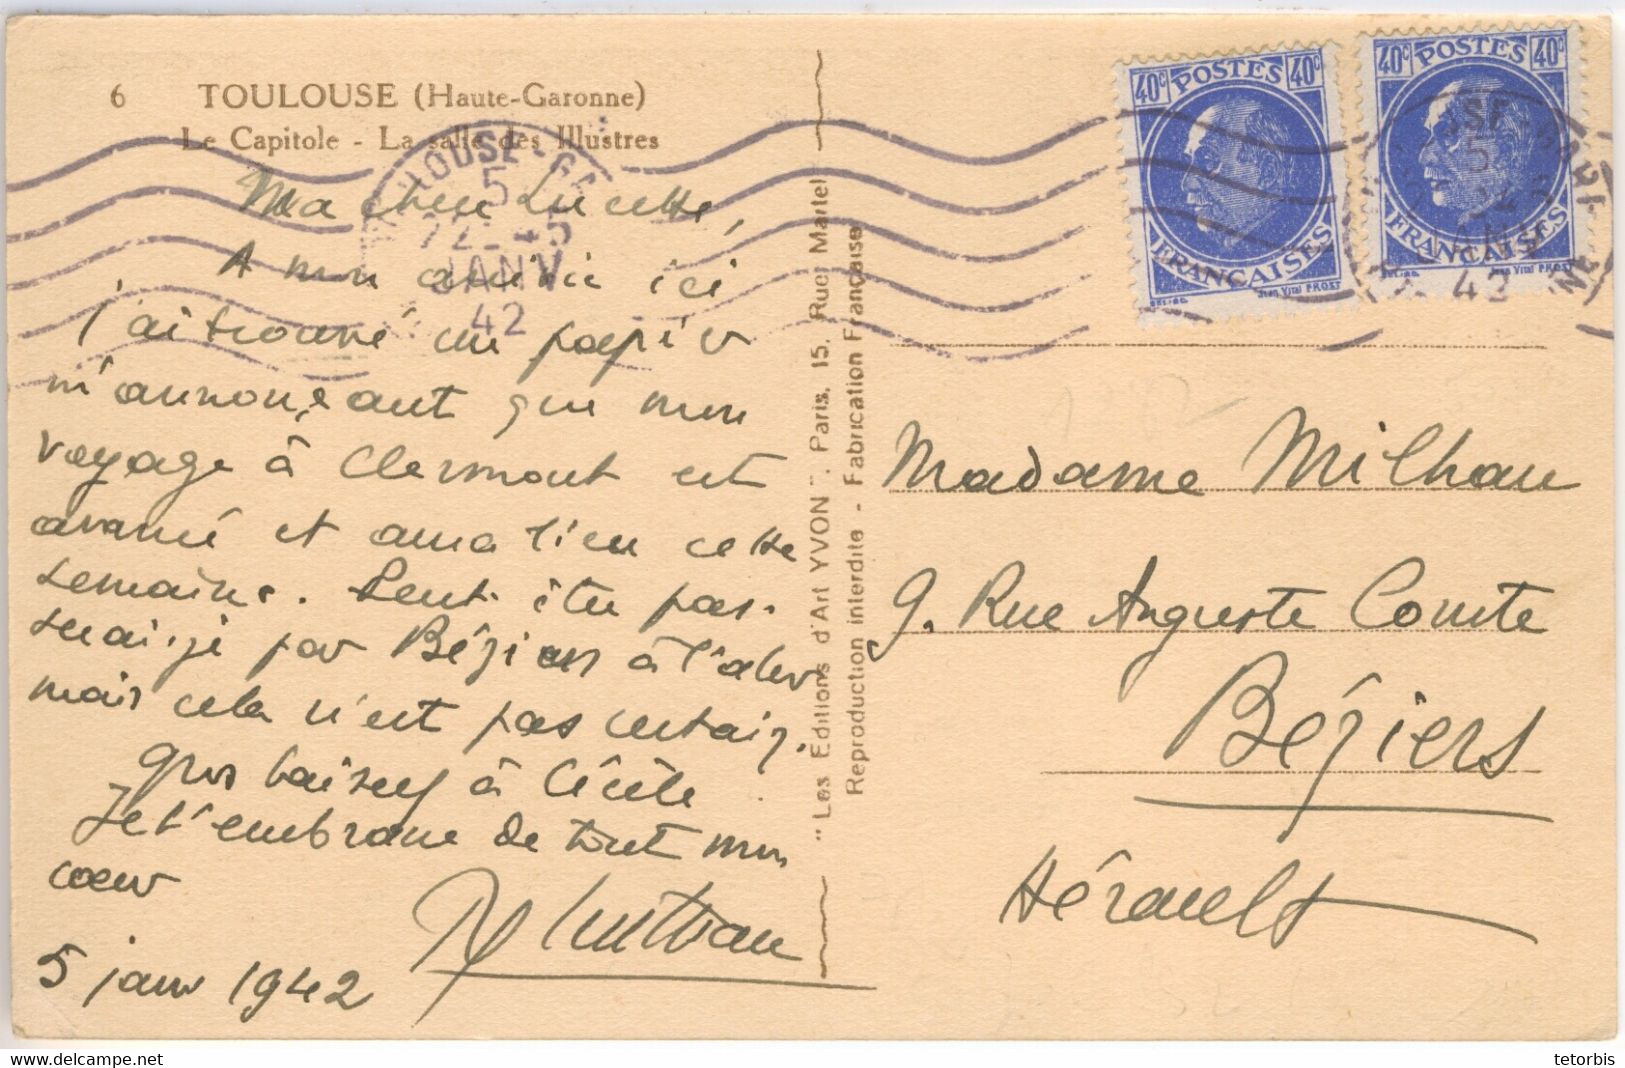 6 TOULOUSE (Haute-Garonne)
Le Capitole - La salle des Illustres
Ma chère Lucette,
A mon arrivée ici
j'ai trouvé un papier
m'annonçant que mon
voyage à Clermont est
avancé et aura lieu cette
semaine. Peut-être pas-
serai-je par Béziers à l'aller
mais cela n'est pas certain.
Gros baisers à Cécile.
Je t'embrasse de tout mon
cœur
5 janv 1942
"Les Editions d'Art YVON". Paris, 15, Rue Martel
Reproduction interdite - Fabrication Française
40c POSTES 40c
FRANÇAISES
JEAN VITAL PROST
40c POSTES 40c
FRANÇAISES
JEAN VITAL PROST
5
JANV
42
5
JANV
42
Madame Milhau
9. Rue Auguste Comte
Béziers
Hérault
www.delcampe.net
tetorbis